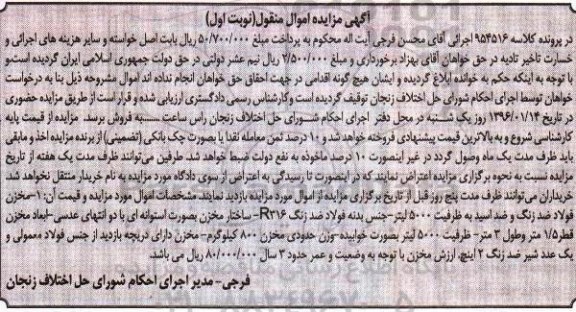 آگهی مزایده اموال منقول(نوبت اول)
در پرونده کلاسه ۹۵۴۵۱۶ اجرائی آقای محسن فرجی آیت اله محکوم به پرداخت مبلغ ۵۰/۷۰۰/۰۰۰ ریال بابت اصل خواسته و سایر هزینه های اجرائی و
خسارت تاخیر تادیه در حق خواهان آقای بهزاد برخورداری و مبلغ ۲/۵۰۰/۰۰۰ ریال نیم عشر دولتی در حق دولت جمهوری اسلامی ایران گردیده است.و
با توجه به اینکه حکم به خوانده ابلاغ گردیده و ایشان هیچ گونه اقدامی در جهت احقاق حق خواهان انجام نداده اند اموال مشروحه ذیل بنا به درخواست
خواهان توسط اجرای احکام شورای حل اختلاف زنجان توقیف گردیده است وکارشناس رسمی دادگستری ارزیابی شده و قرار است از طریق مزایده حضوری
در تاریخ ۱۳۹۶/۰۱/۱۴ روز یک شنبه در محل دفتر اجرای احکام شورای حل اختلاف زنجان راس ساعت به فروش برسد. مزایده از قیمت پایه
کارشناسی شروع و به بالاترین قیمت پیشنهادی فروخته خواهد شد و ۱۰ درصد ثمن معامله نقدا یا بصورت چک بانکی (تضمینی) از برنده مزایده اخذ و مابقی
باید ظرف مدت یک ماه وصول گردد در غیر اینصورت ۱۰ درصد ماخوذه به نفع دولت ضبط خواهد شد. طرفین می‌توانند ظرف مدت یک هفته از تاریخ
مزایده نسبت به نحوه برگزاری مزایده اعتراض نمایند که در اینصورت تا رسیدگی به اعتراض از سوی دادگاه مورد مزایده به نام خریدار منتقل نخواهد شد.
خریداران می‌توانند ظرف مدت پنج روز قبل از تاریخ برگزاری مزایده از اموال مورد مزایده بازدید نمایند. مشخصات اموال مورد مزایده و قیمت آن: ۱-مخزن
فولاد ضد زنگ و ضد اسید به ظرفیت ۵۰۰۰ لیتر-جنس بدنه فولاد ضد زنگ R۳۱۶- ساختار مخزن بصورت استوانه ای با دو انتهای عدسی-ابعاد مخزن
قطر ۱/۵ متر وطول ۳ متر- ظرفیت ۵۰۰۰ لیتر بصورت خوابیده-وزن حدودی مخزن ۸۰۰ کیلوگرم-مخزن دارای دریچه بازدید از جنس فولاد معمولی و
یک عدد شیر ضد زنگ ۲ اینچ. ارزش مخزن با توجه به وضعیت و عمر حدود ۳ سال ۸۰/۰۰۰/۰۰۰ ریال می باشد.
فرجی- مدیر اجرای احکام شورای حل اختلاف زنجان